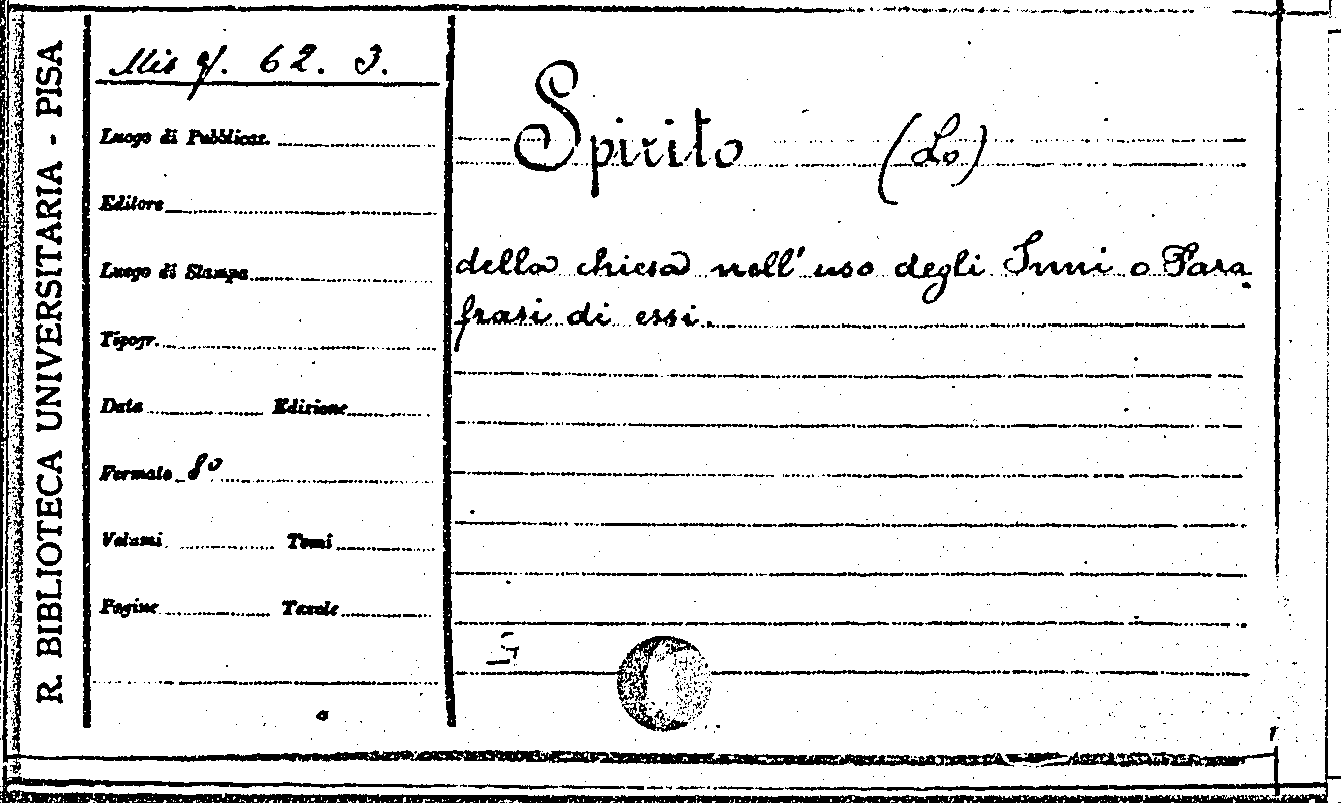 R. BIBLIOTECA UNIVERSITARIA - PISA
Mis 9. 62. 3.
Luogo di Pubblicaz.
Editore
Luogo di Stampa
Tipogr.
Data Edizione
Formato 8º
Volumi Tomi
Pagine Tavole
Spirito (Lo)
della chiesa nell'uso degli Inni o Para
frasi di essi.